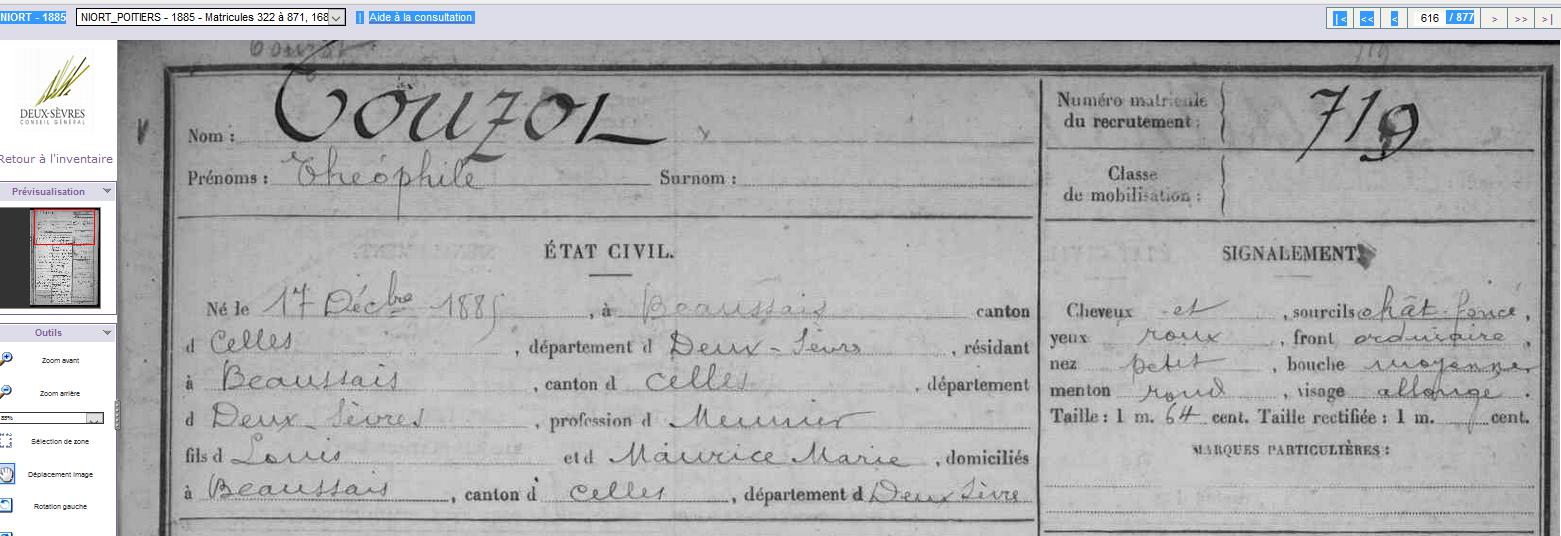 NIORT - 1885
NIORT_POITIERS - 1885 - Matricules 322 à 871, 168
| Aide à la consultation
|< << < 616 / 877 > >> >|
DEUX-SÈVRES
CONSEIL GÉNÉRAL
Retour à l'inventaire
Prévisualisation
Outils
Zoom avant
Zoom arrière
85%
Sélection de zone
Déplacement image
Rotation gauche
Touzot
719
Nom : Touzot
Prénoms : Théophile Surnom :
Numéro matricule
du recrutement : 719
Classe
de mobilisation :
ÉTAT CIVIL.
Né le 17 Décbre 1885, à Beaussais canton
d Celles, département d Deux-Sèvrs, résidant
à Beaussais, canton d Celles, département
d Deux Sèvres, profession d Meunier
fils d Louis et d Maurice Marie, domiciliés
à Beaussais, canton d Celles, département d Deux Sèvre
SIGNALEMENT
Cheveux et, sourcils chât foncé,
yeux roux, front ordinaire,
nez petit, bouche moyenne,
menton rond, visage allongé.
Taille : 1 m. 64 cent. Taille rectifiée : 1 m. cent.
MARQUES PARTICULIÈRES :